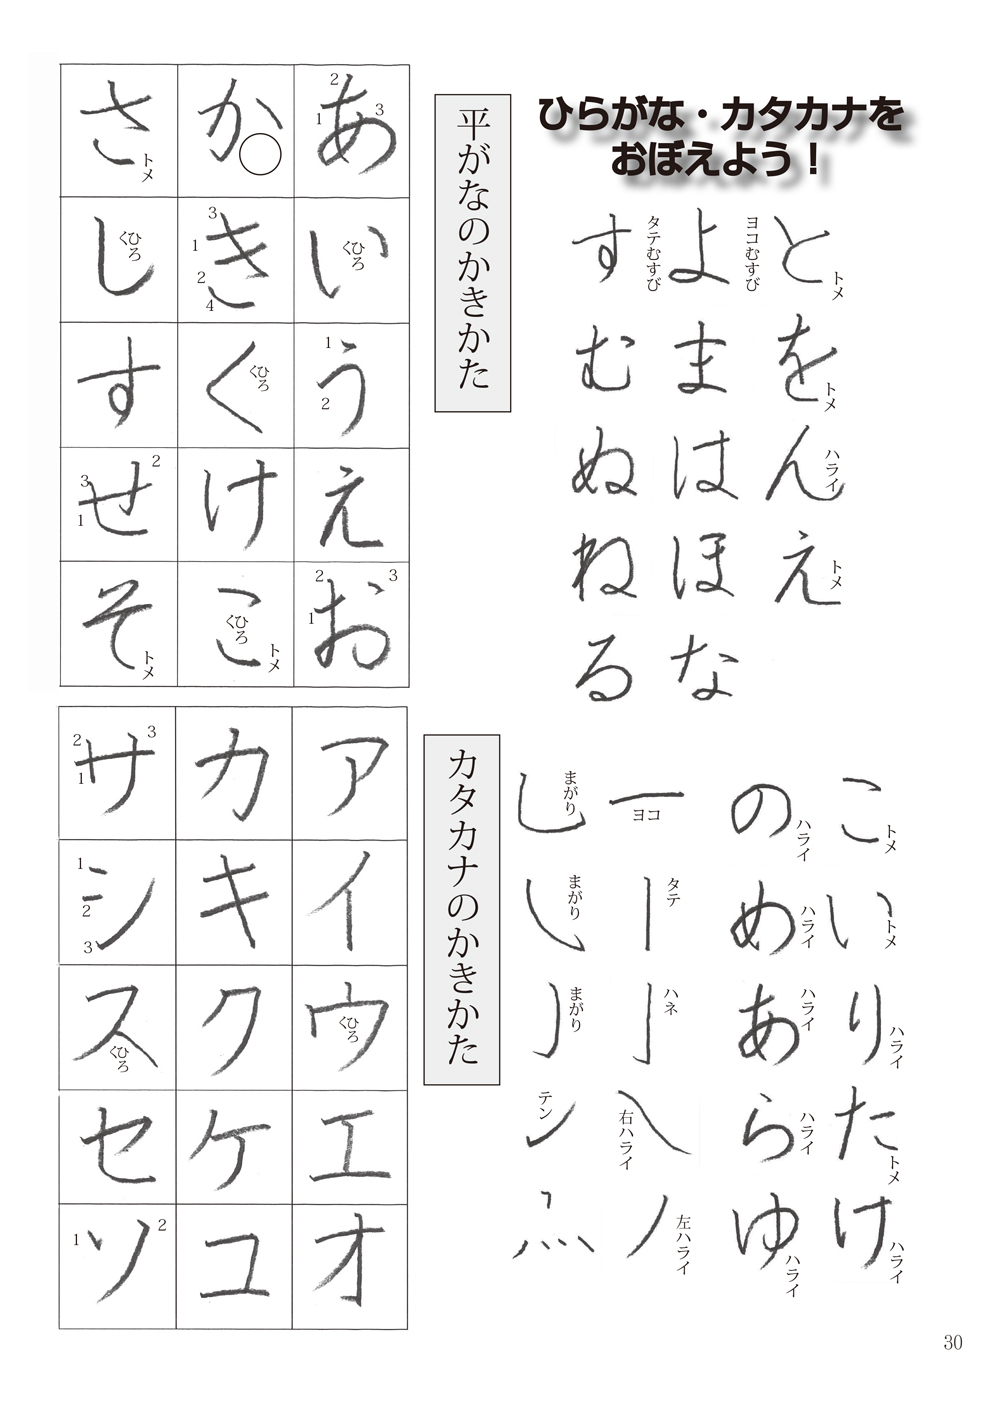 ひらがな・カタカナを
おぼえよう！
と トメ
を トメ
ん ハライ
え トメ
ヨコむすび
よ
ま
は
ほ
な
タテむすび
す
む
ぬ
ね
る
こ トメ
い トメ
り ハライ
た トメ
け ハライ
の ハライ
め ハライ
あ ハライ
ら ハライ
ゆ ハライ
ヨコ
タテ
ハネ
右ハライ
左ハライ
まがり
まがり
まがり
テン
平がなのかきかた
あ 1 2 3
い ひろく
う 1 2
え
お 1 2 3
か
き 1 2 3 4
く ひろく
け
こ ひろく トメ
さ トメ
し ひろく
す
せ 1 2 3
そ トメ
カタカナのかきかた
ア
イ
ウ ひろく
エ
オ
カ
キ
ク
ケ
コ
サ 1 2 3
シ 1 2 3
ス ひろく
セ
ソ 1 2
30